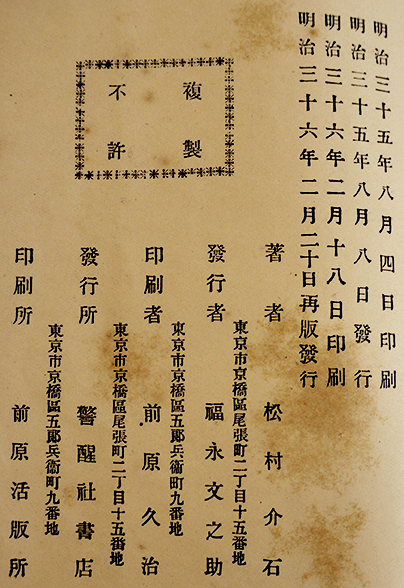 明治三十五年八月四日印刷
明治三十五年八月八日發行
明治三十六年二月十八日印刷
明治三十六年二月二十日再版發行
複製
不許
著者 松村介石
東京市京橋區尾張町二丁目十五番地
發行者 福永文之助
東京市京橋區五郞兵衞町九番地
印刷者 前原久治
東京市京橋區尾張町二丁目十五番地
發行所 警醒社書店
東京市京橋區五郞兵衞町九番地
印刷所 前原活版所